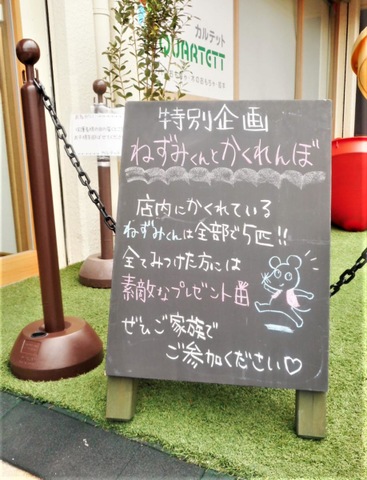 カルテット
QUARTETT
特別企画
ねずみくんとかくれんぼ
店内にかくれている
ねずみくんは全部で5匹!!
全てみつけた方には
素敵なプレゼント
ぜひご家族で
ご参加ください♡